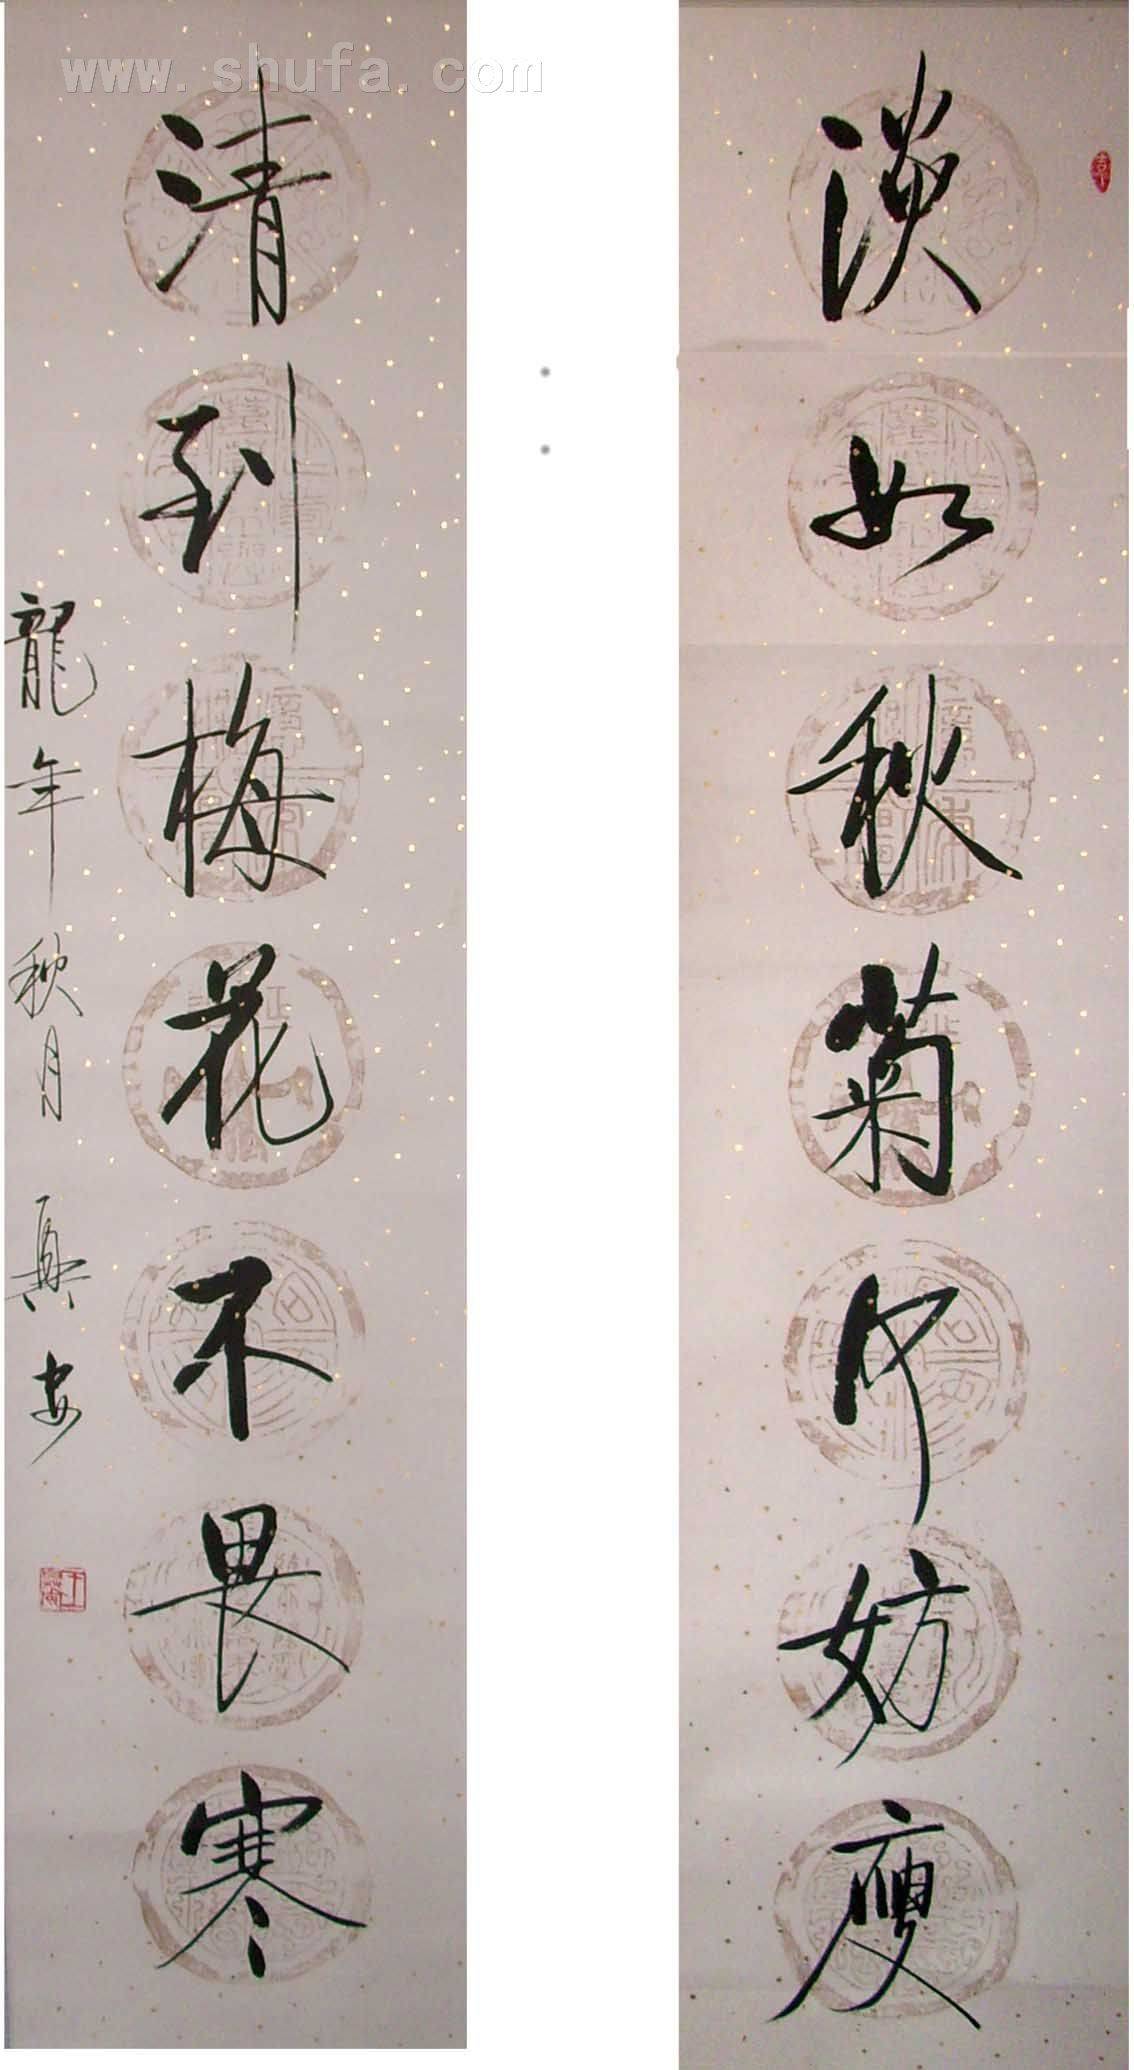 淡如秋菊何妨瘦
清到梅花不畏寒
龍年秋月
www.shufa.com